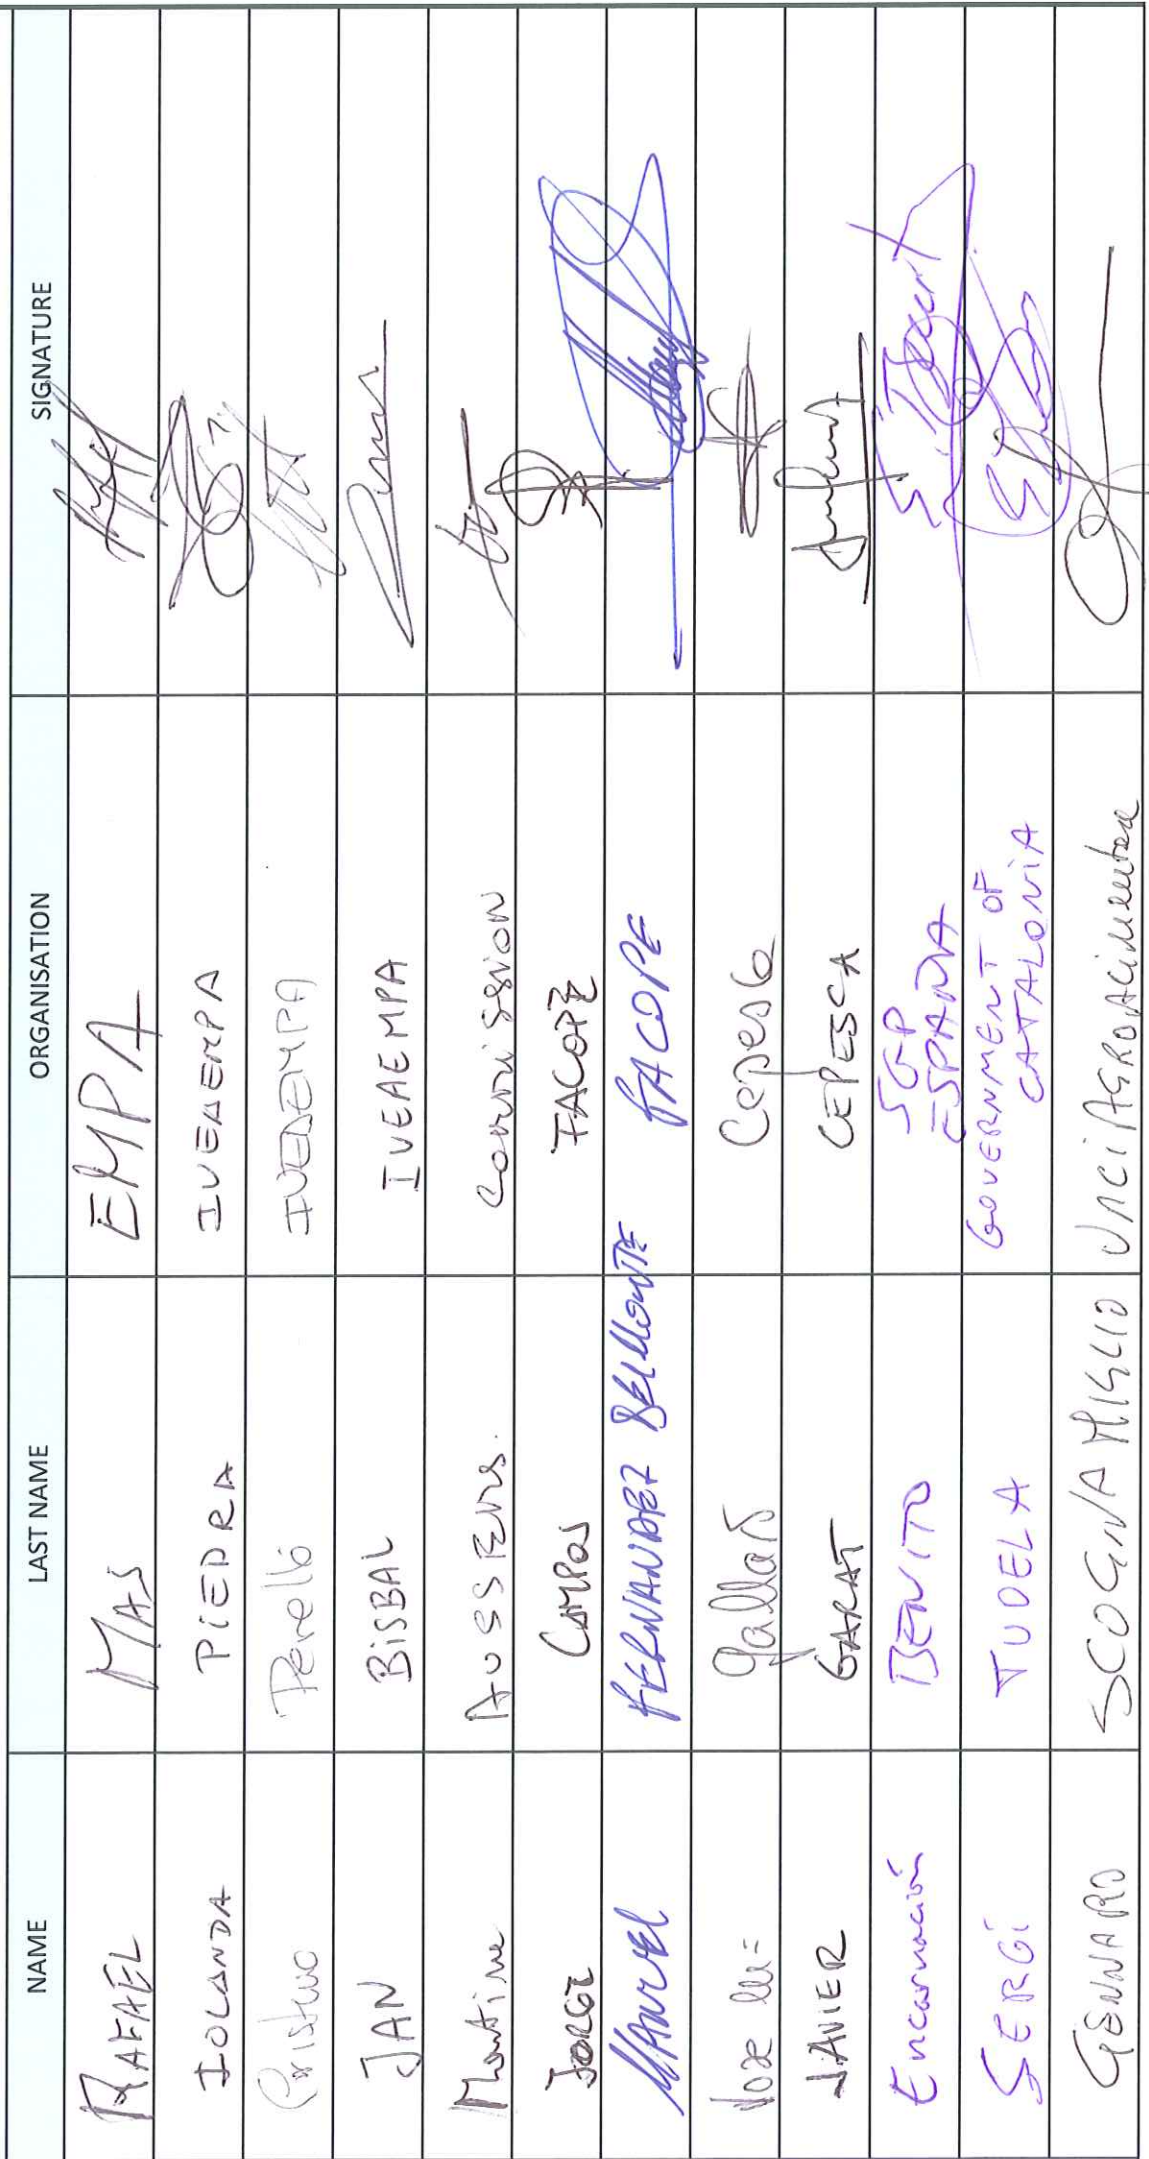 NAME LAST NAME ORGANISATION SIGNATURE
RAFAEL MAS EMPA
IOLANDA PIEDRA IVEAEMPA
Perelló IVEAEMPA
JAN BISBAL IVEAEMPA
Martine AUSSEMS. Commission
JORGE CAMPOS FACOPE
MANUEL FERNANDEZ BELMONTE FACOPE
Jose Cepesca
JAVIER GARAT CEPESCA
Encarnación BENITO SGP
ESPAÑA
SERGI TUDELA GOVERNMENT OF
CATALONIA
GENNARO SCOGNAMIGLIO UNCI AGROALIMENTARE